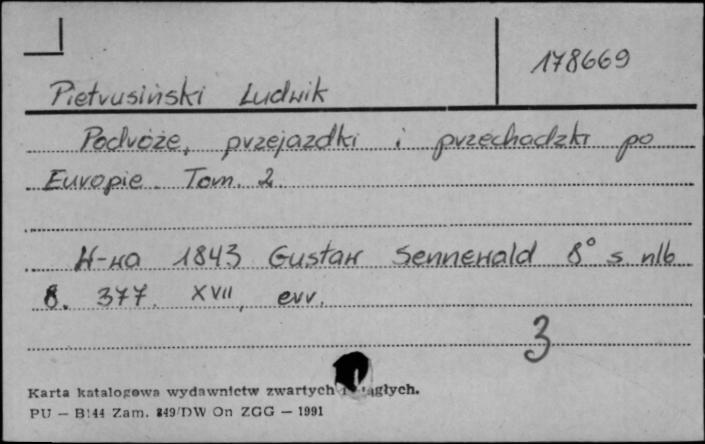 178669
Pietrusiński Ludwik
Podróże, przejazdki i przechadzki po
Europie Tom. 2
W-wa 1843 Gustaw Sennewald 8° s. nlb
8. 377. XVII, err.
3
Karta katalogowa wydawnictw zwartych i ciągłych.
PU — B144 Zam. 849/DW On ZGG — 1991